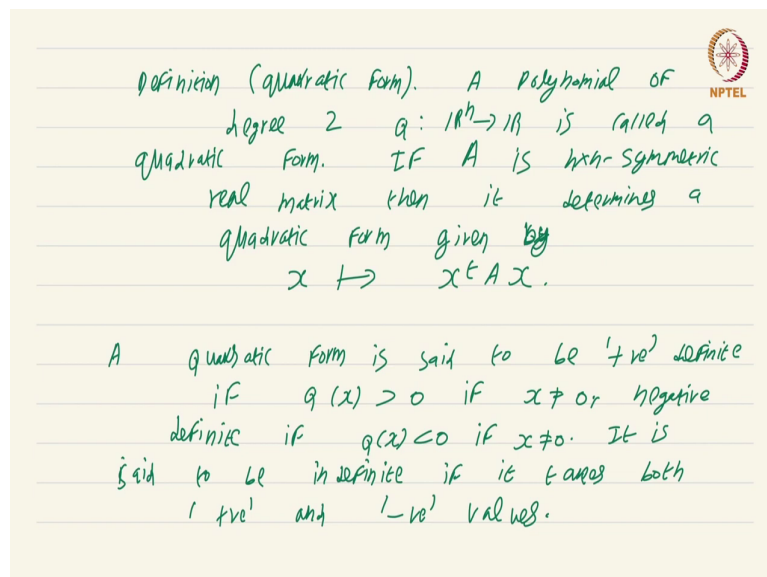 NPTEL
Definition (quadratic form). A polynomial of
degree 2 Q : ℝⁿ → ℝ is called a
quadratic form. If A is n×n- symmetric
real matrix then it determines a
quadratic form given by
x ↦ xᵗ A x.
A quadratic form is said to be '+ve' definite
if Q (x) > 0 if x ≠ 0, negative
definite if Q(x) < 0 if x ≠ 0. It is
said to be indefinite if it takes both
'+ve' and '-ve' values.